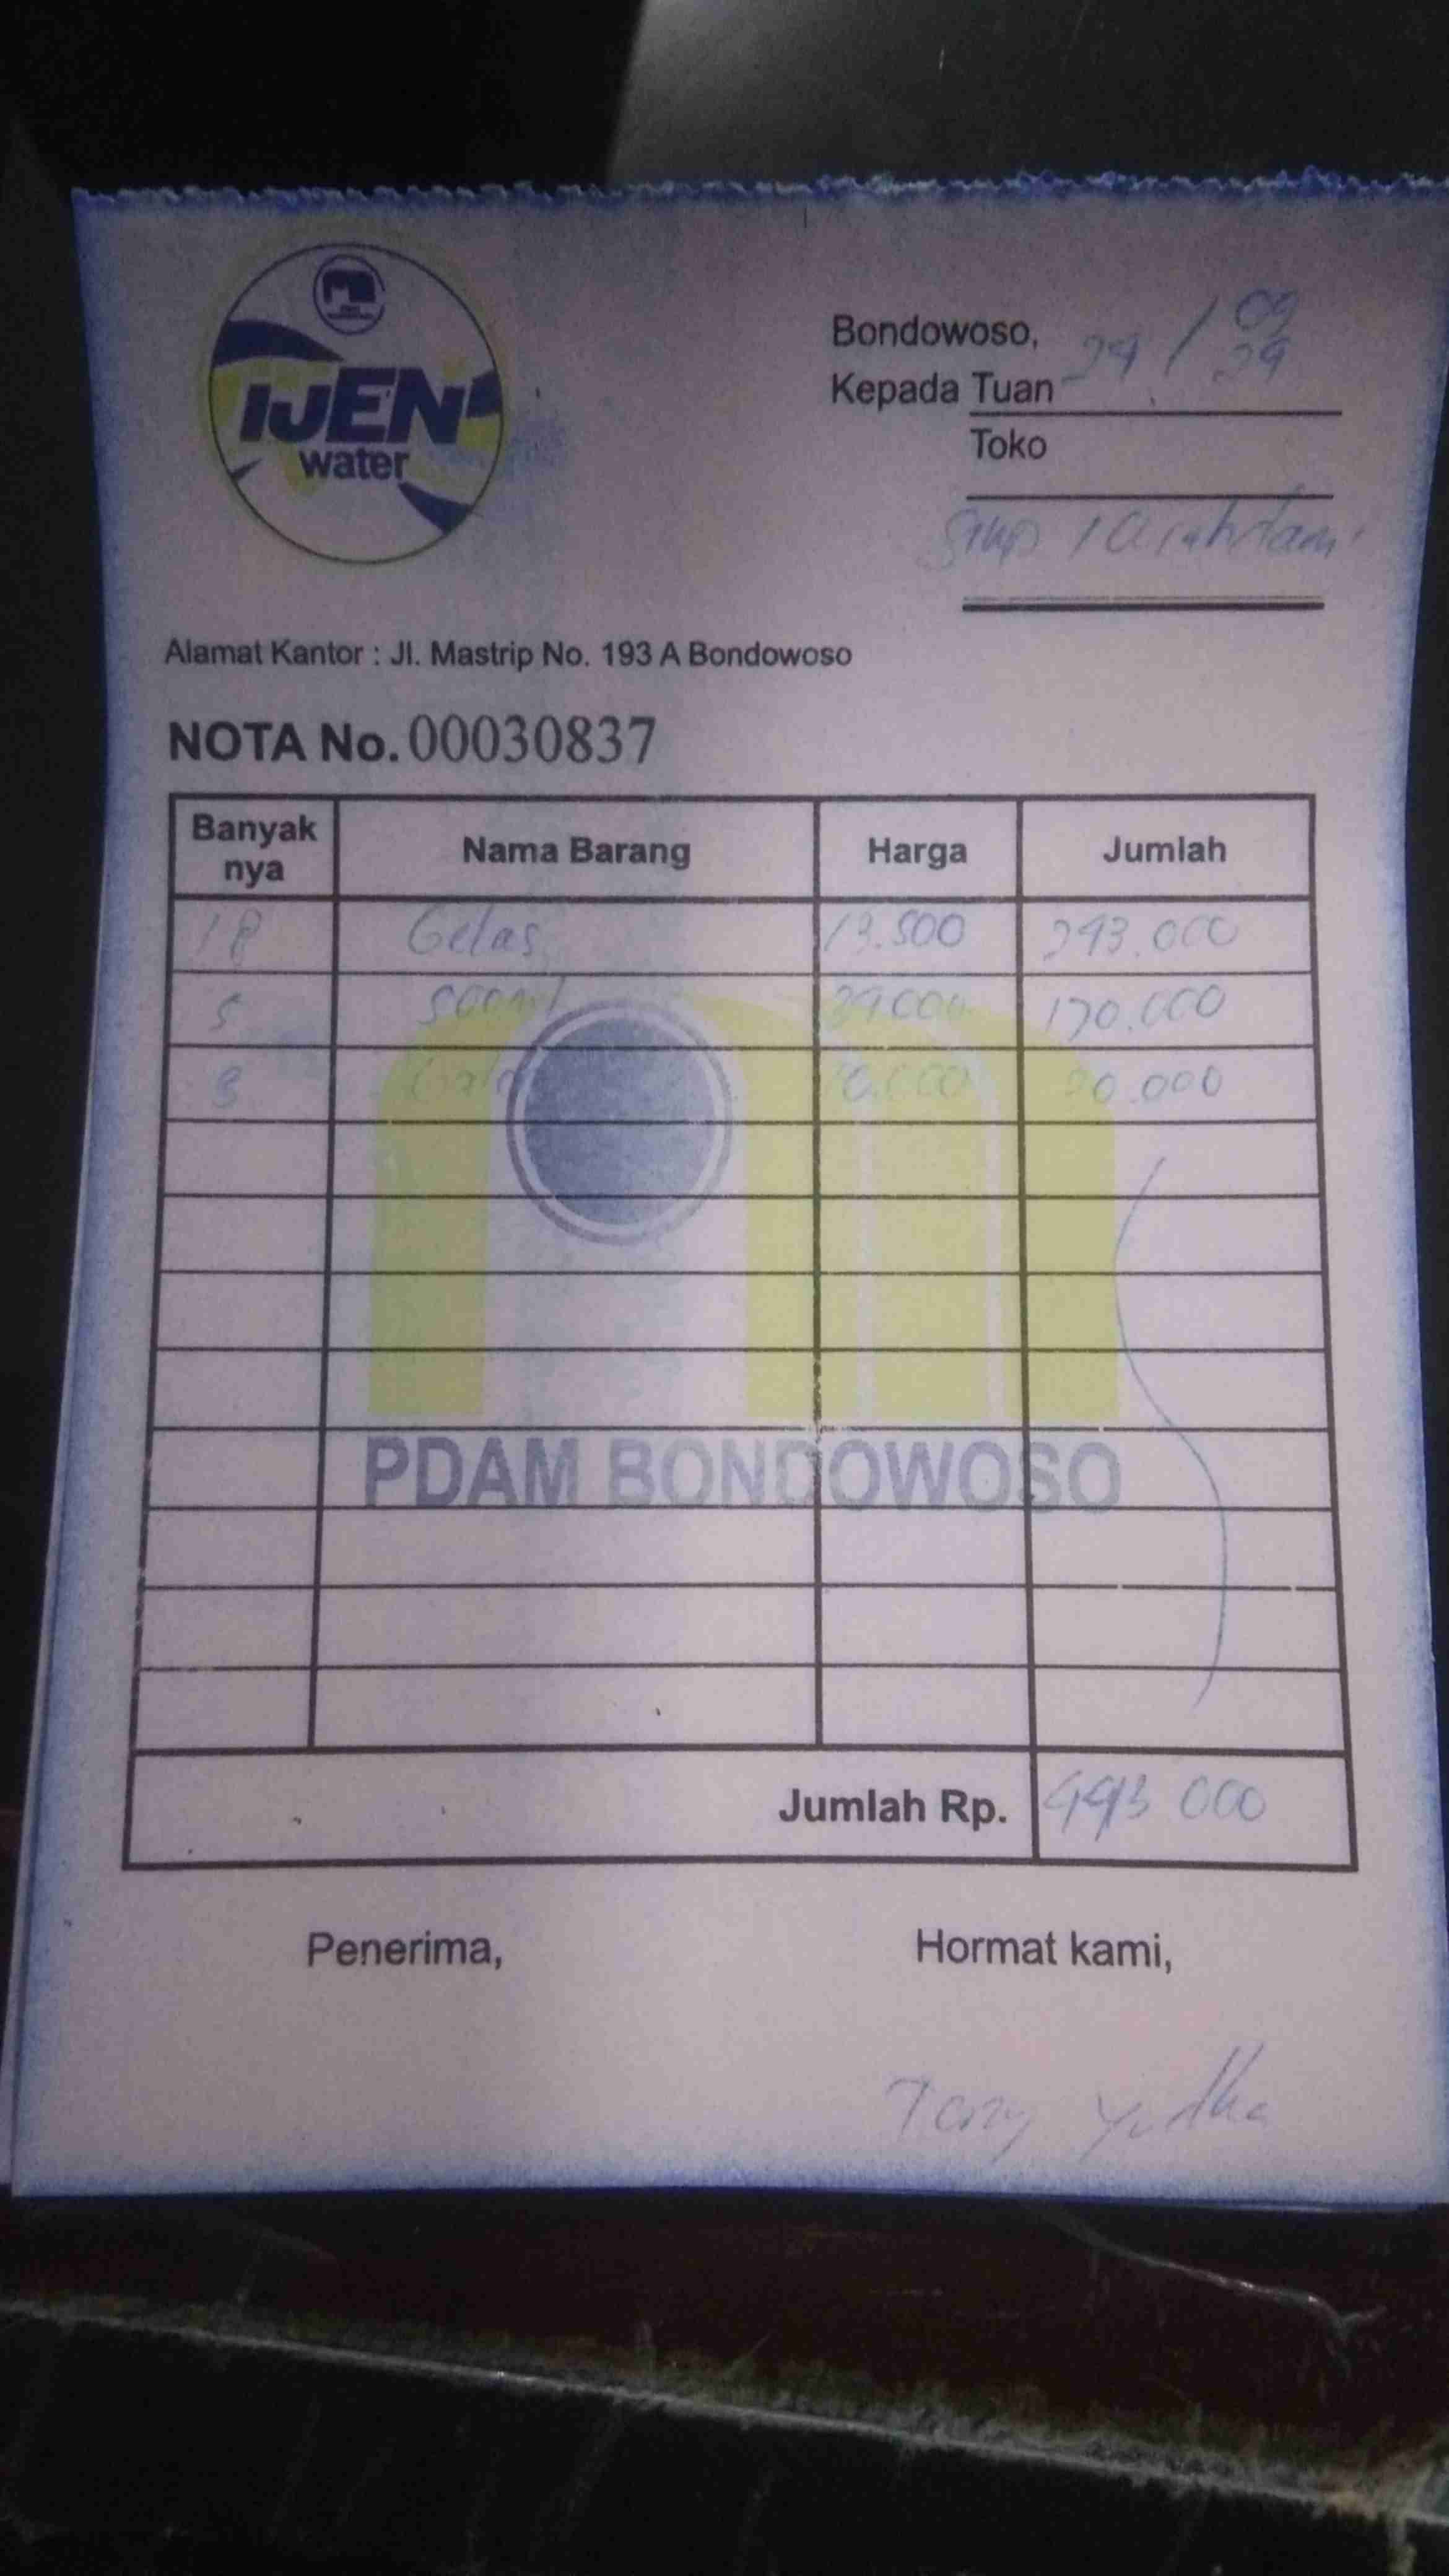 IJEN
water
Bondowoso, 24 / 09 24
Kepada Tuan
Toko
Alamat Kantor : Jl. Mastrip No. 193 A Bondowoso
NOTA No. 00030837
Banyak nya Nama Barang Harga Jumlah
18 Gelas 13.500 243.000
5 500ml 34.000 170.000
3
PDAM BONDOWOSO
Jumlah Rp.
Penerima, Hormat kami,
Tony Yudha